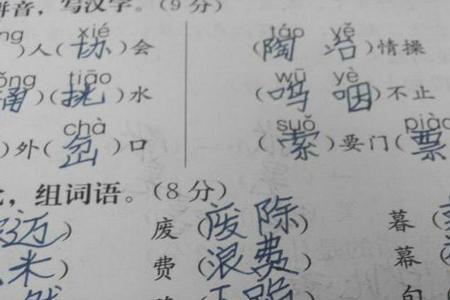 拼音,写汉字。(9分)
ng xié táo yě
)人(协)会 (陶冶)情操
ǒng tiāo wū yè
(挑)水 (呜咽)不止
chà suǒ piào
)外(岔)口 (索)要门(票
,组词语。(8分)
迈) 废(废除) 暮(
米) 费(浪费) 幕(